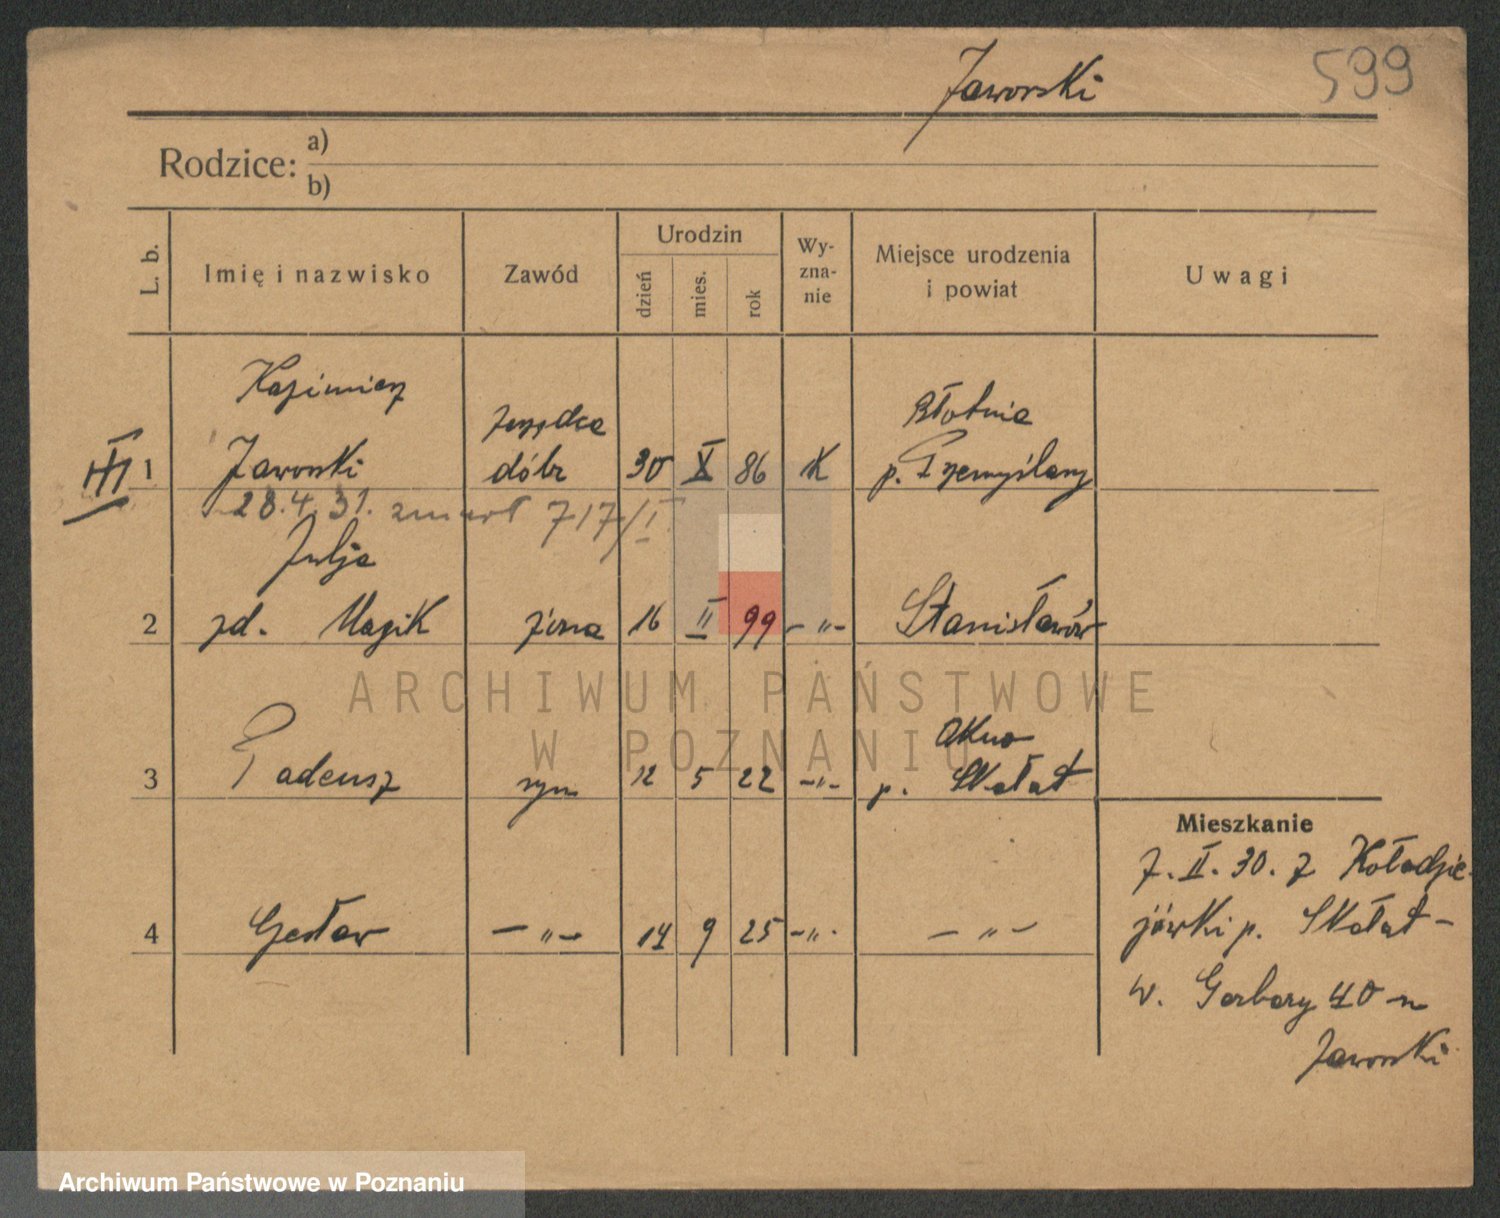 Jaworski
599
Rodzice:
a)
b)
L. b.
Imię i nazwisko
Zawód
Urodzin
dzień
mies.
rok
Wy-
zna-
nie
Miejsce urodzenia
i powiat
Uwagi
III
1
Kazimierz
Jaworski
zarządca
dóbr
30 X 86
rK
Błotnia
p. Przemyślany
28.4.31. zmarł 717/I
2
Julja
zd. Magik
żona
16 II 99
- " -
Stanisławów
3
Tadeusz
syn
12 5 22
- " -
Okno
p. Skałat
4
Gustaw
- " -
14 9 25
- " -
- " -
Mieszkanie
7. II. 30. z Kołodzie-
jówki p. Skałat -
w. Garbary 40
Jaworski
ARCHIWUM PAŃSTWOWE
W POZNANIU
Archiwum Państwowe w Poznaniu